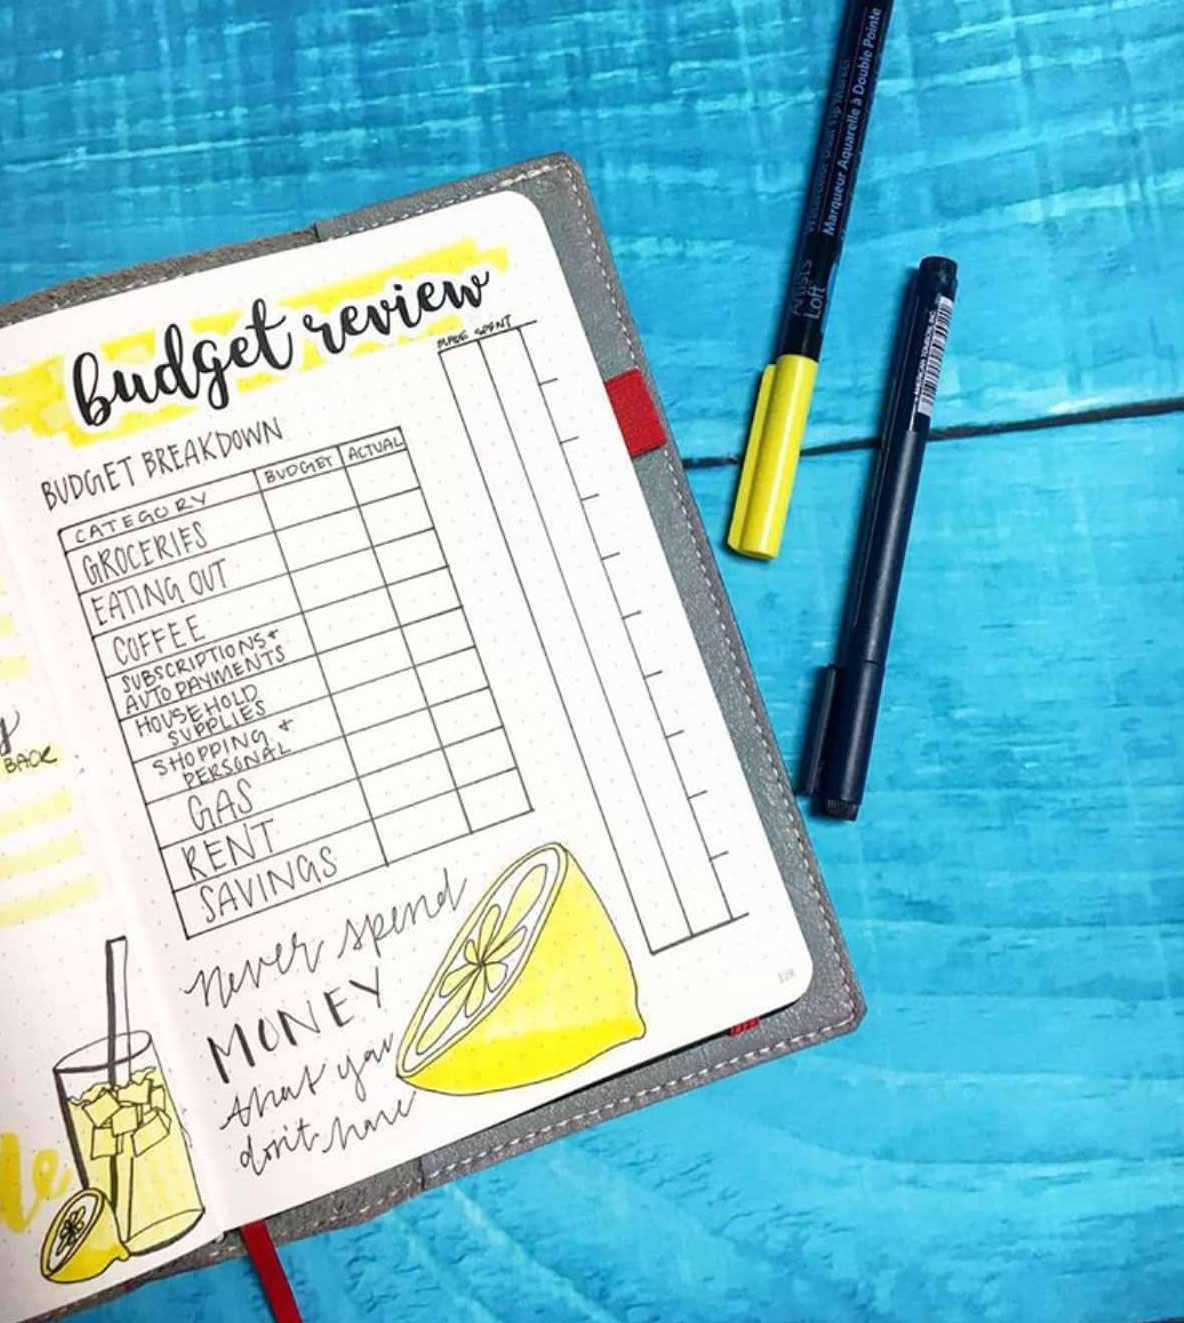 budget review
MADE SPENT
BUDGET BREAKDOWN
CATEGORY BUDGET ACTUAL
GROCERIES
EATING OUT
COFFEE
SUBSCRIPTIONS +
AUTO PAYMENTS
HOUSEHOLD
SUPPLIES
SHOPPING +
PERSONAL
GAS
RENT
SAVINGS
never spend
MONEY
that you
don't have
128
BACK
Artist's
Loft
Marqueur Aquarelle à Double Pointe